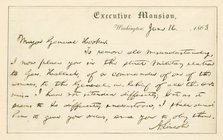 Executive Mansion,
Washington, June 16, 1863
Major General Hooker
To remove all misunderstanding,
I now place you in the strict military relation
to Gen. Halleck, of a commander of one of the
armies, to the General-in-Chief of all the ar-
mies. I have not intended differently; but as it
seems to be differently understood, I shall direct
him to give you orders, and you to obey them.
A. Lincoln